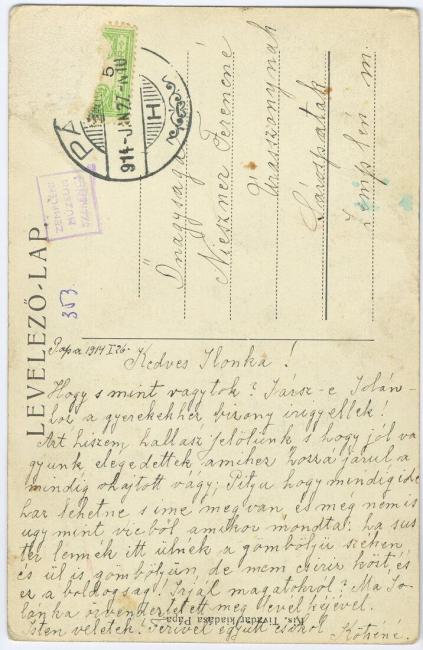 LEVELEZŐ-LAP.
PÁPA
914 JAN 27
5
H
ZEMPLÉNI
MÚZEUM
SZERENCS
353
Őnagysága
Nieszner Ferencné
Úrasszonynak
Sárospatak
Zemplén m
Pápa 1914 I 26.
Kedves Ilonka!
Hogy s mint vagytok? Jársz-e Jolán-
hoz a gyerekekhez, bizony irigyellek!
Azt hiszem, hallasz felőlünk s hogy jól va
gyunk elegedettek, amihez hozzá járul a
mindig ohajtott vagy; Pityu hogy mindig ide
haz lehetne s ime meg van, és még nem is
ugy mint viczből amikor mondta: ha sus
ter lennék itt ülnék a gömbölyü széken
és ül is gömbölyün, de nem csiriz bort, és
ez a boldogság. Irjál magatokról? Ma Jo-
lánka örvendeztetett meg levelkéjével.
Isten veletek! Ferivel együtt csókol Kötiné.
Kis Tivadar kiadása Pápa